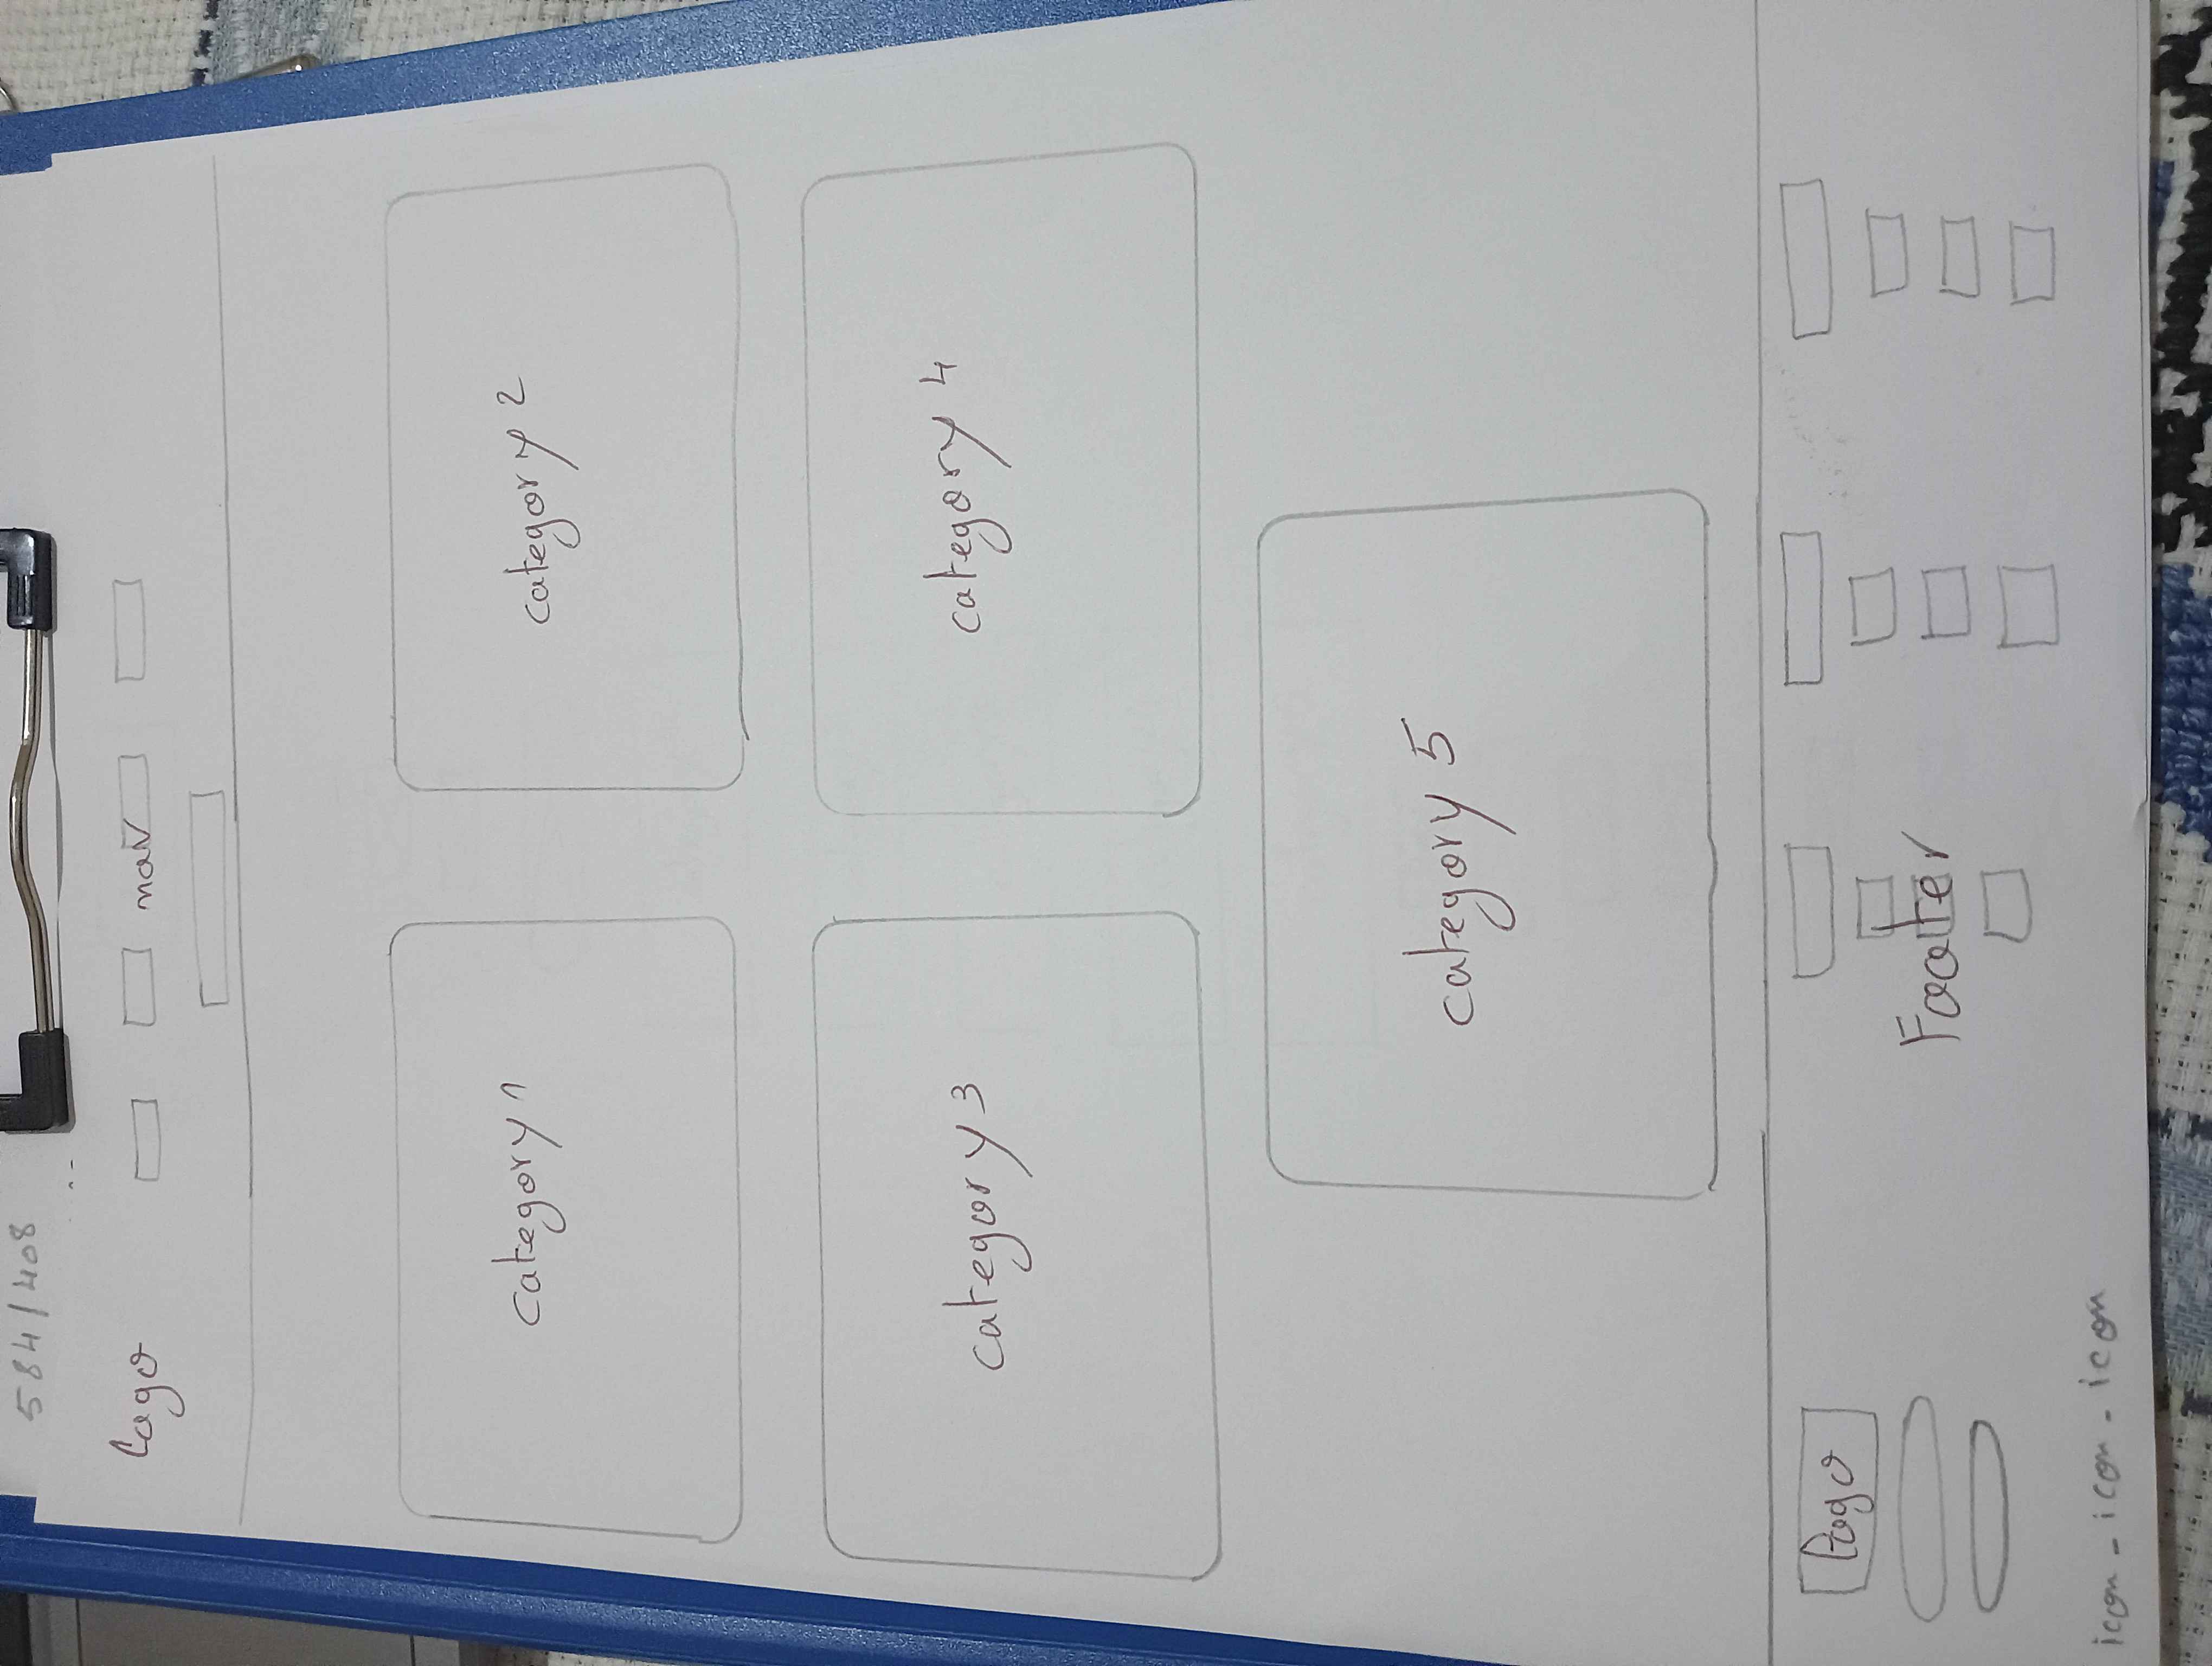 584/408
Logo
nav
Category 1
category 2
category 3
category 4
category 5
Logo
Footer
icon - icon - icon